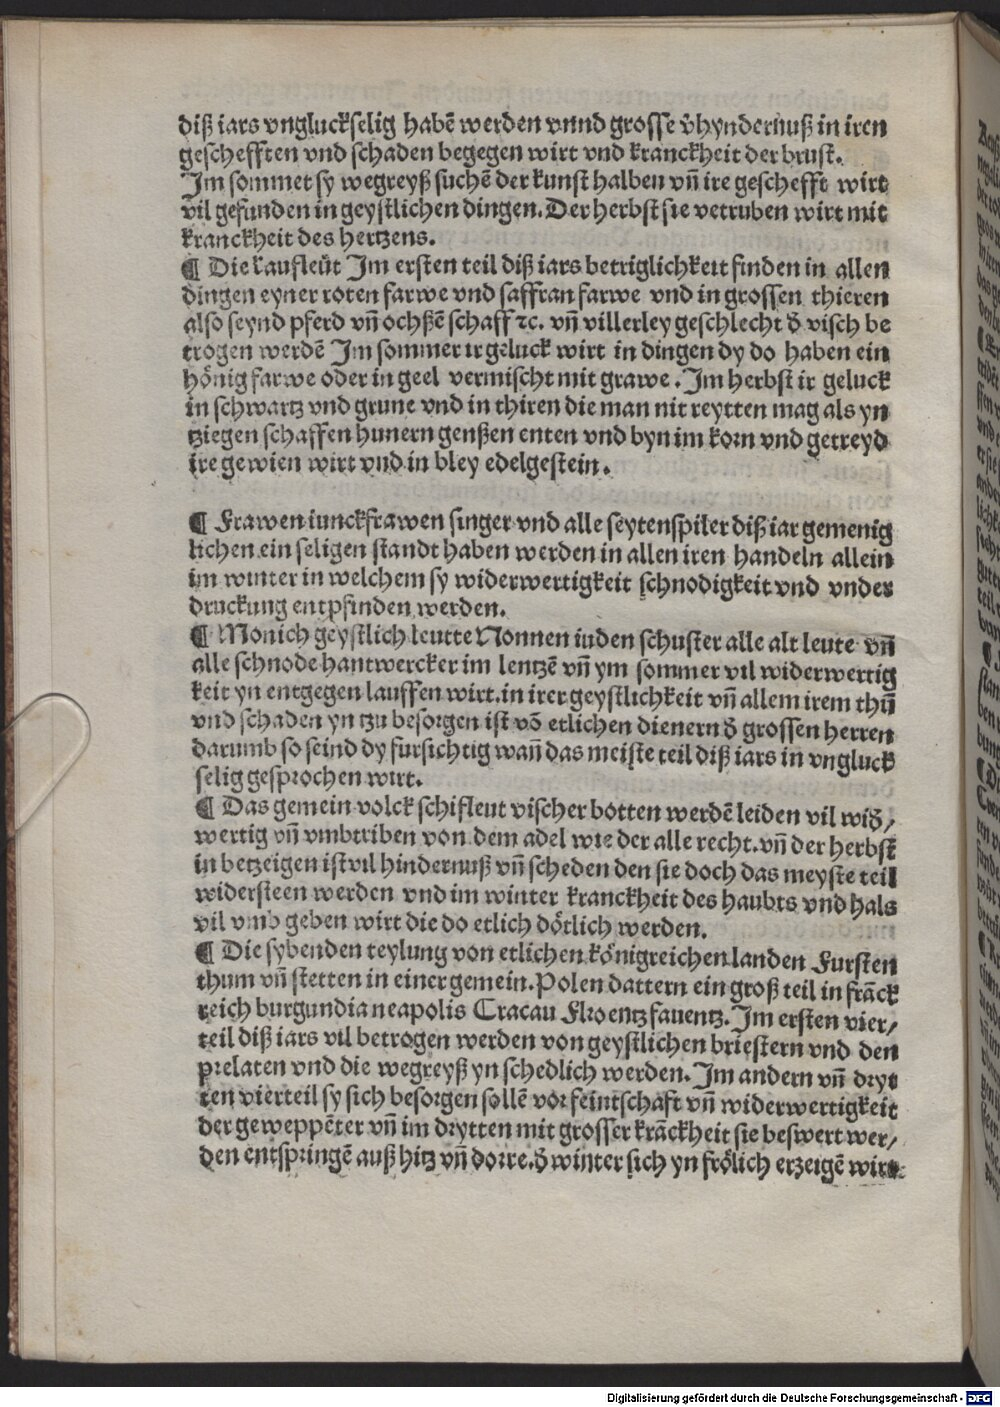 diß iars vngluckselig habē werden vnnd grosse v̄hyndernuß in iren
geschefften vnd schaden begegen wirt vnd kranckheit der brust.
Im sommet sy wegreyß suchē der kunst halben vn̄ ire geschefft wirt
vil gefunden in geystlichen dingen. Der herbst sie vetruben wirt mit
kranckheit des hertzens.
¶ Die kaufleüt Im ersten teil diß iars betriglichkeit finden in allen
dingen eyner roten farwe vnd saffran farwe vnd in grossen thieren
also seynd pferd vn̄ ochßē schaff ⁊c. vn̄ villerley geschlecht d̄ visch be
trogen werdē Im sommer ir geluck wirt in dingen dy do haben ein
hönig farwe oder in geel vermischt mit grawe. Im herbst ir geluck
in schwartz vnd grune vnd in thiren die man nit reytten mag als yn
tziegen schaffen hunern genßen enten vnd byn im korn vnd getreyd
ire gewien wirt vnd in bley edelgestein.
¶ Frawen iunckfrawen singer vnd alle seytenspiler diß iar gemenig
lichen ein seligen standt haben werden in allen iren handeln allein
im winter in welchem sy widerwertigkeit schnodigkeit vnd vnder
druckung entpfinden werden.
¶ Monich geystlich leutte Nonnen iuden schuster alle alt leute vn̄
alle schnode hantwercker im lentzē vn̄ ym sommer vil widerwertig
keit yn entgegen lauffen wirt. in irer geystlichkeit vn̄ allem irem thū
vnd schaden yn tzu besorgen ist vō etlichen dienern d̄ grossen herren
darumb so seind dy fursichtig wan̄ das meiste teil diß iars in vngluck
selig gesprochen wirt.
¶ Das gemein volck schifleut vischer botten werdē leiden vil wid̄/
wertig vn̄ vmbtriben von dem adel wie der alle recht. vn̄ der herbst
in betzeigen ist vil hindernuß vn̄ scheden den sie doch das meyste teil
widersteen werden vnd im winter kranckheit des haubts vnd hals
vil vmb geben wirt die do etlich dötlich werden.
¶ Die sybenden teylung von etlichen königreichen landen Fursten
thum vn̄ stetten in einer gemein. Polen dattern ein groß teil in frāck
reich burgundia neapolis Cracau Floentz fauentz. Im ersten vier/
teil diß iars vil betrogen werden von geystlichen briestern vnd den
prelaten vnd die wegreyß yn schedlich werden. Im andern vn̄ dryt
ten vierteil sy sich besorgen sollē vor feintschaft vn̄ widerwertigkeit
der geweppēter vn̄ im drytten mit grosser krāckheit sie beswert wer/
den entspringē auß hitz vn̄ dorre. d̄ winter sich yn frölich erzeigē wirt
Digitalisierung gefördert durch die Deutsche Forschungsgemeinschaft - DFG